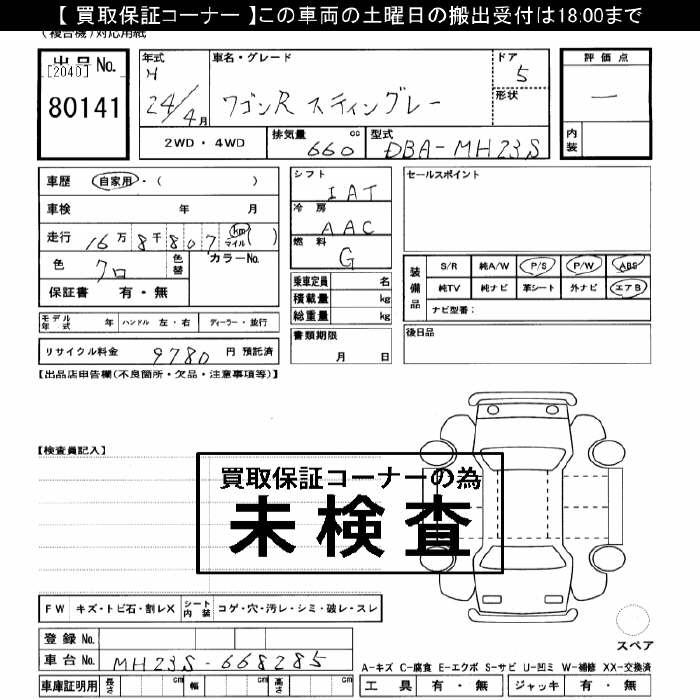 【 買取保証コーナー 】この車両の土曜日の搬出受付は18:00まで
(複合機)対応用紙
出品No. [2040] 80141
年式 H 24/4月
車名・グレード ワゴンR スティングレー
ドア 5
形状
評価点 —
内装
2WD ・ 4WD
排気量 660 cc
型式 DBA-MH23S
車歴 自家用 ・ ( )
車検 年 月
走行 16万8千807 km マイル ( )
色 クロ 色替 カラーNo.
保証書 有 ・ 無
シフト IAT
冷房 AAC
燃料 G
乗車定員 名
積載量 kg
総重量 kg
セールスポイント
装備品 S/R 純A/W P/S P/W ABS
純TV 純ナビ 革シート 外ナビ エアB
ナビ型番:
モデル年式 年 ハンドル 左・右 ディーラー・並行
書類期限 月 日
後日品
リサイクル料金 9780 円 預託済
【出品店申告欄(不良箇所・欠品・注意事項等)】
【検査員記入】
買取保証コーナーの為
未検査
FW キズ・トビ石・割レX シート内装 コゲ・穴・汚レ・シミ・破レ・スレ
登録 No.
車台 No. MH23S-668285
スペア
A-キズ C-腐食 E-エクボ S-サビ U-凹ミ W-補修 XX-交換済
車庫証明用 長さ cm 幅 cm 高さ cm
工具 有 ・ 無 ジャッキ 有 ・ 無